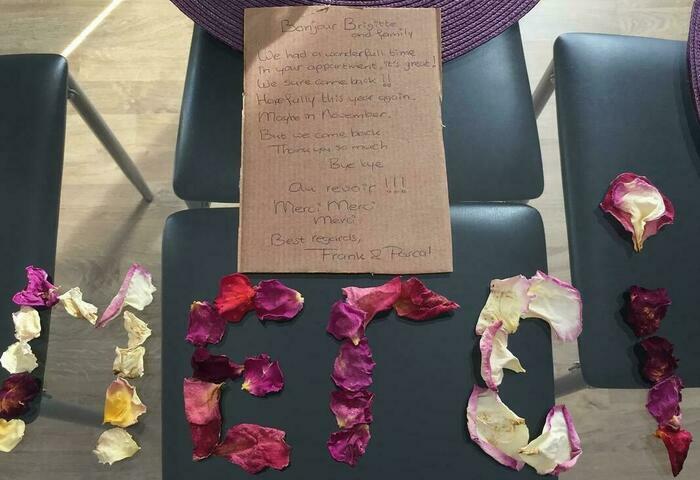 Bonjour Brigitte
and family
We had a wonderfull time
in your appartment, it's great!
We sure come back !!
Hopefully this year again.
Maybe in November.
But we come back
Thank you so much
Bye bye
Au revoir !!!
Merci Merci
Merci
Best regards,
Frank & Pascal
MERCI